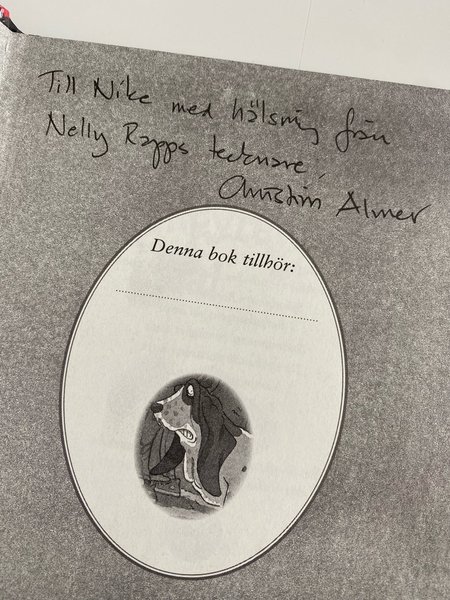 Till Nike med hälsning från
Nelly Rapps tecknare,
Christin Almer
Denna bok tillhör: